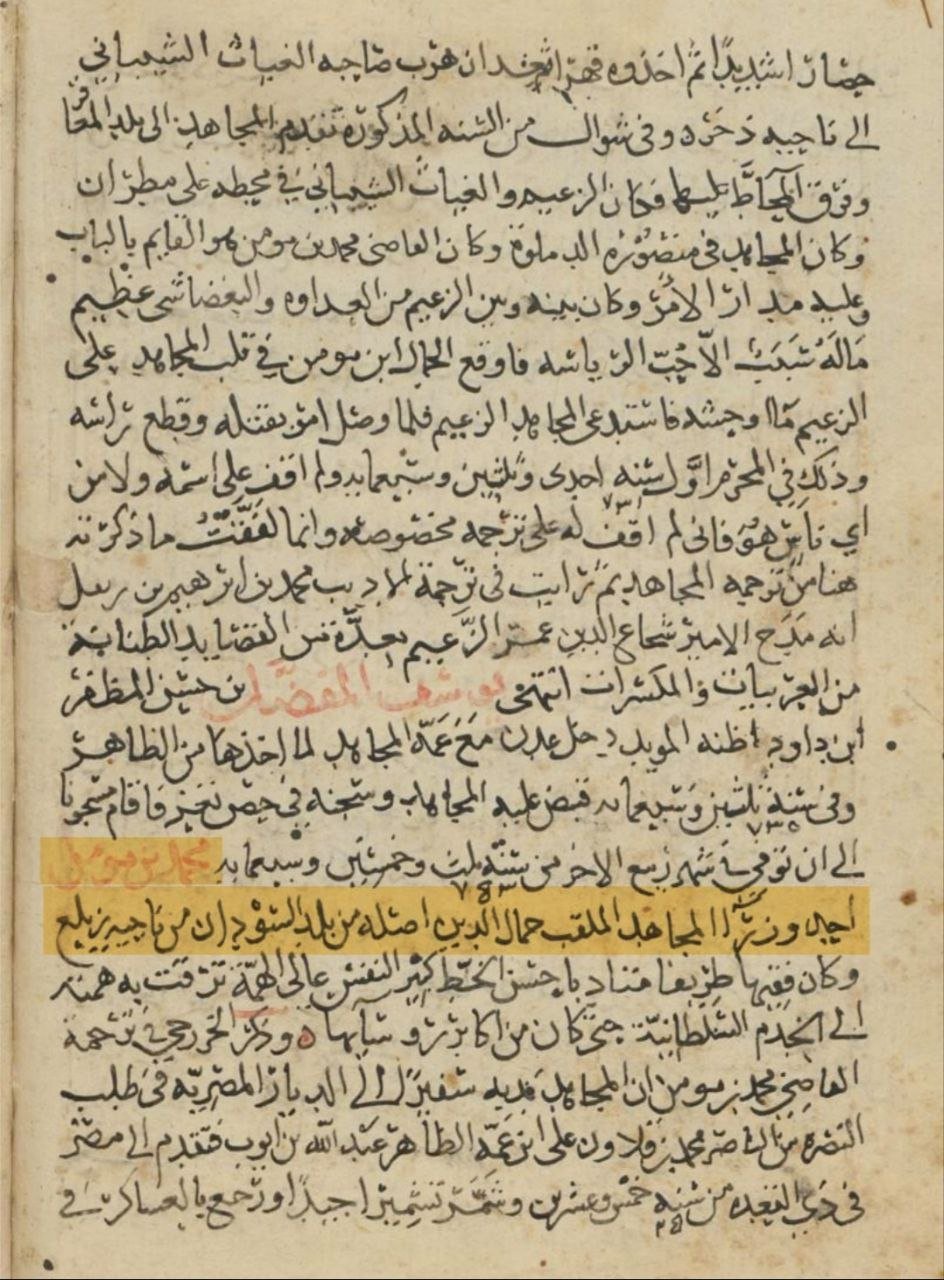 حصارا شديدا ثم اخذوه قهرا بعد ان هرب صاحبه الغياث الشيباني
الى ناحيه ذخر ه وفى شوال من السنه المذكورة تقدم المجاهد الى بلد المعافر
وفرق المحاط عليها فكان الزعيم والغياث الشيباني في محطه على مطران
وكان المجاهد فى منصورة الدملوة وكان القاضى محمد بن مومن هو القايم بالباب
وعليه مدار الامر وكان بينه وبين الزعيم من العداوه والبغضا شى عظيم
ماله سبب الا حب الرياسه فاوقع الجمال ابن مومن في قلب المجاهد على
الزعيم ما اوحشه فاستدعى المجاهد الزعيم فلما وصل امر بقتله وقطع راسه
وذلك في المحرم اول سنه احدى وثلثين وسبعمايه ولم اقف على اسمه ولا من
٧٣١
اي ناس هو فانى لم اقف له على ترجمه مخصوصه وانما لفقت ما ذكرته
هنا من ترجمه المجاهد ثم رايت فى ترجمة الاديب محمد بن ابرهيم بن
انه مدح الامير شجاع الدين عمر الزعيم بعدة من القصايد الطنانة
من العربيات والمكسرات انتهى يوسف المفضل بن حسن المظفر
ابن داود اظنه المويد دخل عدن مع عمه المجاهد لما اخذها من الظاهر
وفى سنة ثلثين وسبعمايه قبض عليه المجاهد وسجنه فى حصن تعز فاقام مسجونا
٧٣٠
الى ان توفى فى شهر ربيع الاخر من سنة ثلث وخمسين وسبعمايه محمد بن مومن
احد وزرا المجاهد الملقب جمال الدين اصله من بلد السودان من ناحيه زيلع
وكان فقيها ظريفا متادبا حسن الخط كبير النفس عالى الهمة ترقت به همته
الى الخدم السلطانية حتى كان من اكابر رؤسايها ه وذكر الخزرجي فى ترجمة
القاضى محمد بن مومن ان المجاهد ندبه سفيرا الى الديار المصريه فى طلب
النصره من الناصر محمد بن قلاون على ابن عمه الظاهر عبد الله بن ايوب فتقدم الى مصر
فى ذي القعده من سنه خمس وعشرين وشمر تشميرا جيدا ورجع بالعساكر فى
٢٥